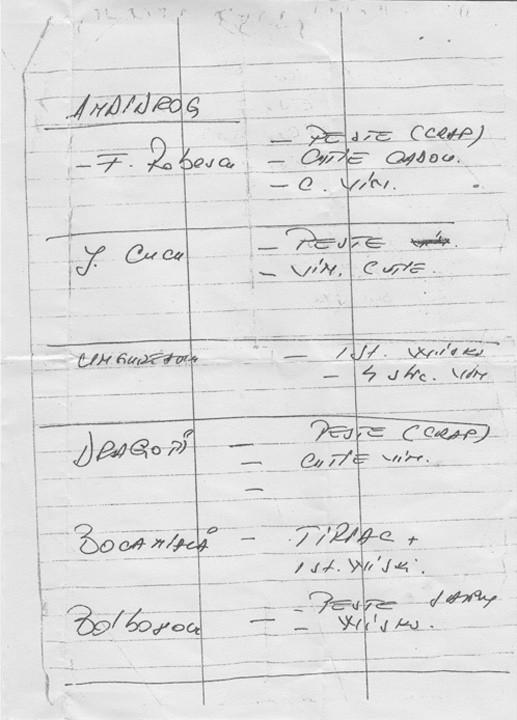 AMDIDROG
- F. Robescu - PESTE (CRAP)
- CUTIE CADOU.
- C. VIN.
J. Cucu - PESTE
- VIN. CUTIE.
UNGUREANU - 1 ST. WISKY
- 4 STIC. VIN
DRAGOTĂ - PESTE (CRAP)
- CUTIE VIN.
-
BOCANIALĂ - TIRIAC +
1 ST. WISKI.
Bolboșou - - PESTE
- WISKI.